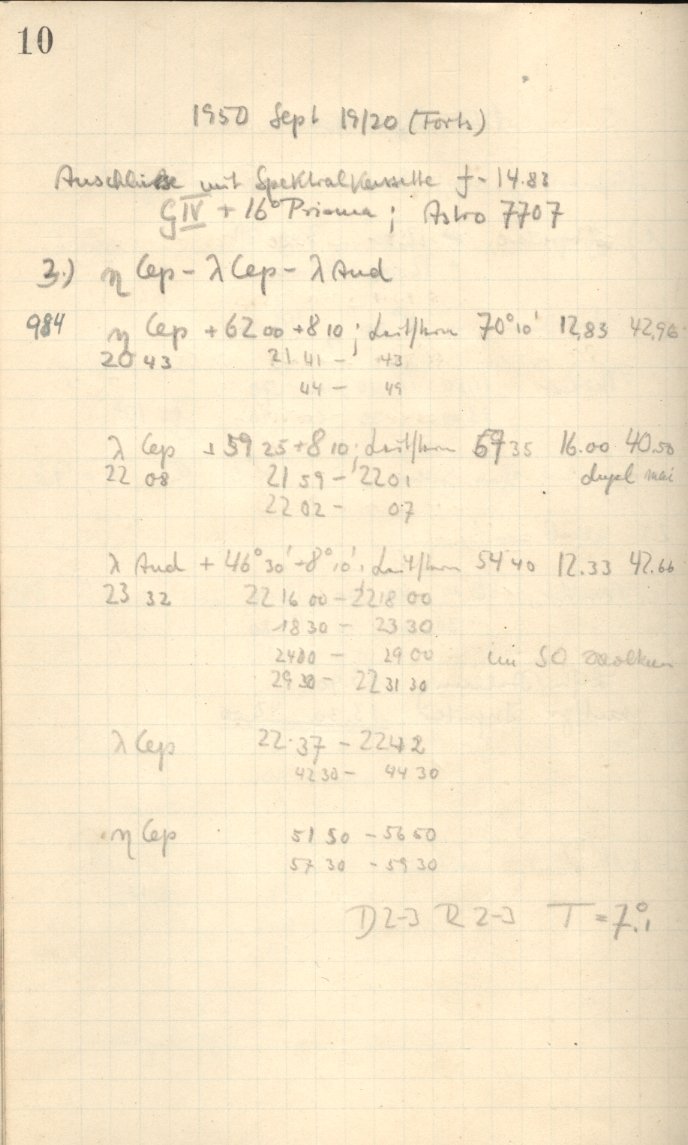 10
1950 Sept 19/20 (Forts)
Anschlüsse mit Spektralkassette f = 14.83
G IV + 16° Prisma; Astro 7707
3.) η Cep - λ Cep - λ And
984 η Cep + 62 00 + 8 10; Leitstern 70° 10' 12.83 42.96
20 43 21 41 - 43
44 - 49
λ Cep + 59 25 + 8 10; Leitstern 67 35 16.00 40.50
22 08 21 59 - 22 01
22 02 - 07
λ And + 46° 30' + 8° 10'; Leitstern 54 40 12.33 42.66
23 32 22 16 00 - 22 18 00
18 30 - 23 30
24 00 - 29 00 im SO
29 30 - 22 31 30
λ Cep 22 37 - 22 42
42 30 - 44 30
η Cep 51 50 - 56 50
57 30 - 59 30
D 2-3 R 2-3 T = 7°.1